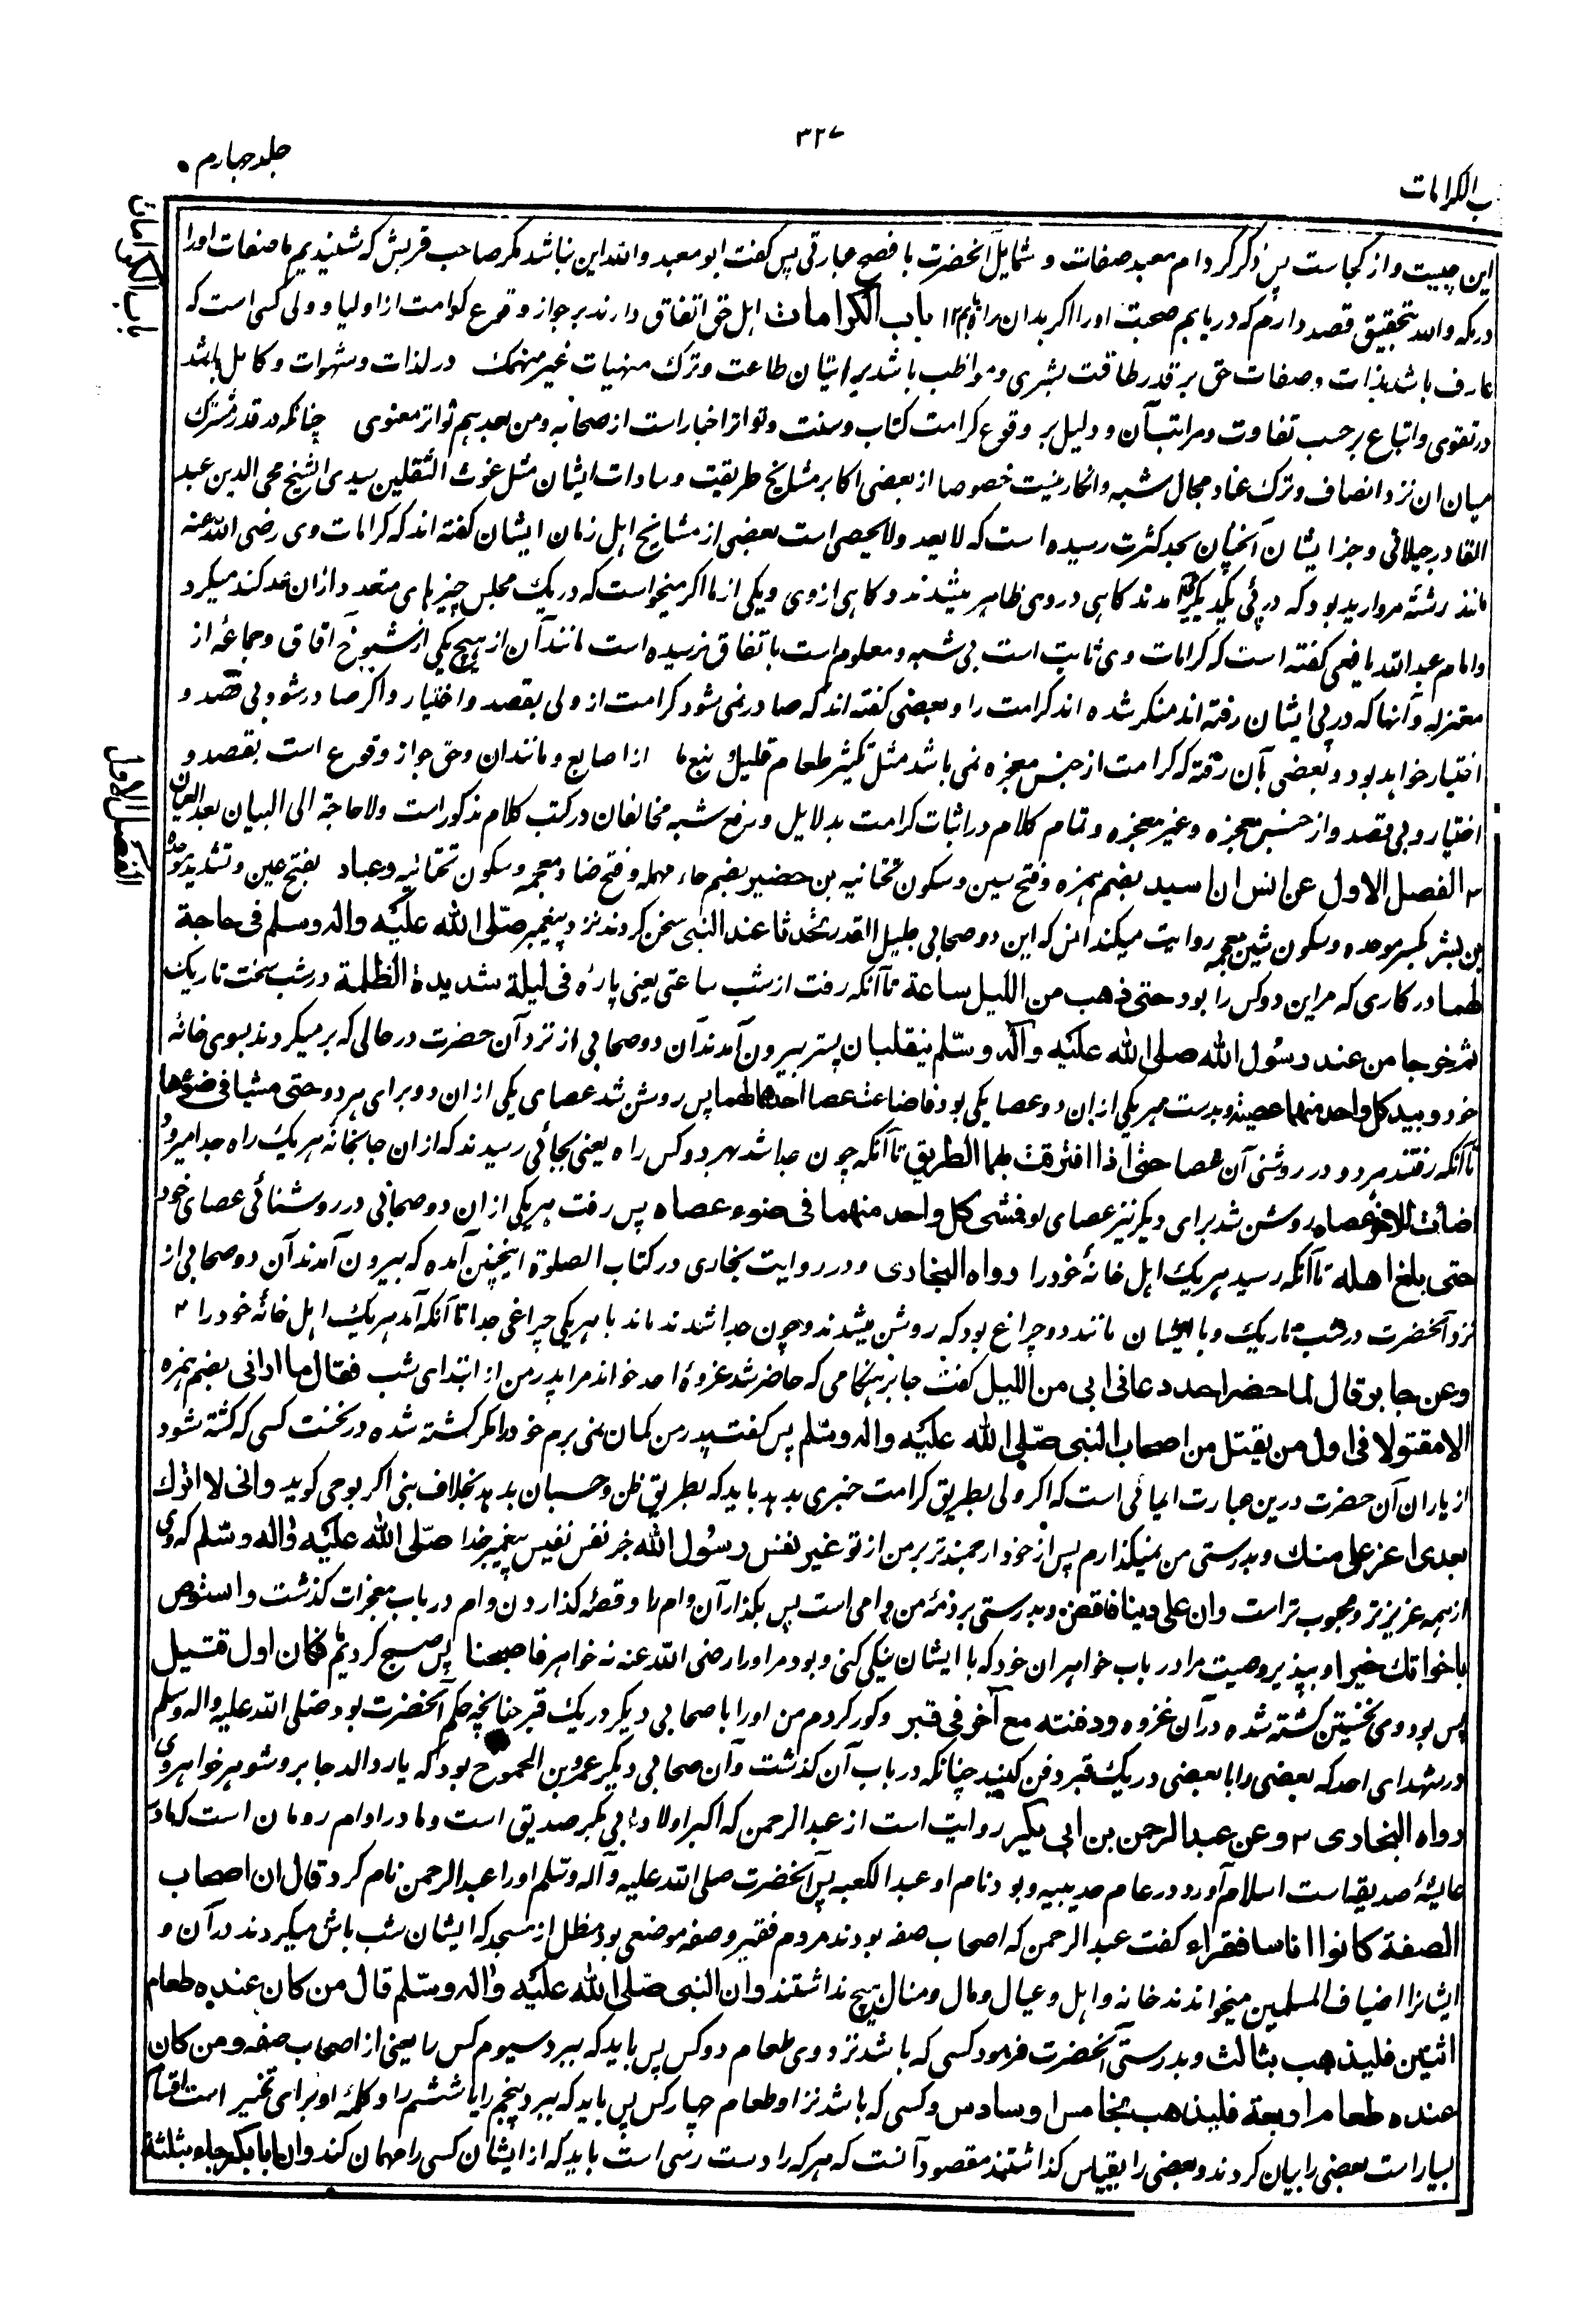 ۳۲۷
جلد چهارم
ب الکرامات
باب الکرامات
این چیست و از کجاست پس ذکر کرد ام معبد صفات و شمایل آنحضرت با فصح عبارتی پس گفت ابو معبد والله این نباشد مگر صاحب قریش که شنیدیم ما صفات او را
در مکه والله بتحقیق قصد دارم که دریابم صحبت او را اگر بدان راه یابم ۱۲ باب الکرامات اهل حق اتفاق دارند بر جواز و وقوع کرامت از اولیا و ولی کسی است که
عارف باشد بذات و صفات حق بر قدر طاقت بشری و مواظب باشد بر اتیان طاعت و ترک منهیات غیر منهمک در لذات و شهوات و کامل باشد
در تقوی و اتباع بر حسب تفاوت و مراتب آن و دلیل بر وقوع کرامت کتاب و سنت و تواتر اخبار است از صحابه و من بعد هم تواتر معنوی چنانکه در قدر مشترک
میان ان نزد انصاف و ترک عناد مجال شبه و انکار نیست خصوصا از بعضی اکابر مشایخ طریقت و سادات ایشان مثل غوث الثقلین سیدی الشیخ محی الدین عبد
القادر جیلانی و جز ایشان آنچنان بحد کثرت رسیده است که لا یعد ولا یحصی است بعضی از مشایخ اهل زمان ایشان گفته اند که کرامات وی رضی الله عنه
مانند رشته مروارید بود که در پئی یکدیگر می آمدند گاهی در وی ظاهر میشدند و گاهی از وی و یکی از ما اگر میخواست که در یک مجلس چیزهای متعدد از ان عد کند میکرد
و امام عبدالله یافعی گفته است که کرامات وی ثابت است بی شبه و معلوم است باتفاق نرسیده است مانند آن از هیچ یکی از شیوخ آفاق و جماعهٔ از
معتزله و آنها که در پی ایشان رفته اند منکر شده اند کرامت را و بعضی گفته اند که صادر نمی شود کرامت از ولی بقصد و اختیار و اگر صادر شود بی قصد و
اختیار خواهد بود و بعضی بآن رفته که کرامت از جنس معجزه نمی باشد مثل تکثیر طعام قلیل و نبع ما از اصابع و مانند ان و حق جواز وقوع است بقصد و
اختیار و بی قصد و از جنس معجزه و غیر معجزه و تمام کلام در اثبات کرامت بدلایل و رفع شبه مخالفان در کتب کلام مذکور است ولا حاجة الی البیان بعد العیان
الفصل الاول
الفصل الاول عن انس ان اسید بضم همزه و فتح سین و سکون تحتانیه بن حضیر بضم حاء مهمله و فتح ضاد معجمه و سکون تحتانیه و عباد بفتح عین و تشدید موحده
بن بشر بکسر موحده و سکون شین معجمه روایت میکند انس که این دو صحابی جلیل القدر تحدثا عند النبی سخن کردند نزد پیغمبر صلی الله علیه واله وسلم فی حاجة
لهما در کاری که مر این دو کس را بود حتی ذهب من اللیل ساعة تا آنکه رفت از شب ساعتی یعنی پارهٔ فی لیلة شدیدة الظلمة در شب سخت تاریک
ثم خرجا من عند رسول الله صلی الله علیه وآله وسلم ینقلبان پستر بیرون آمدند آن دو صحابی از نزد آن حضرت در حالی که بر میگردند بسوی خانهٔ
خود وبید کل واحد منهما عصیة و بدست هر یکی از ان دو عصا یکی بود فاضاءت عصا احدهما لهما پس روشن شد عصای یکی از ان دو برای هر دو حتی مشیا فی ضوئها
تا آنکه رفتند هر دو در روشنی آن عصا حتی اذا افترقت بهما الطریق تا آنکه چون جدا شد بهر دو کس راه یعنی بجائی رسیدند که از ان جا بخانهٔ هر یک راه جدا میرود
اضاءت للاخر عصاه روشن شد برای دیگر نیز عصای او فمشی کل واحد منهما فی ضوء عصاه پس رفت هر یکی از ان دو صحابی در روشنائی عصای خود
حتی بلغ اهله تا آنکه رسید هر یک اهل خانهٔ خود را رواه البخاری و در روایت بخاری در کتاب الصلوة اینچنین آمده که بیرون آمدند آن دو صحابی از
نزد آنحضرت در شب تاریک و با ایشان مانند دو چراغ بود که روشن میشدند و چون جدا شدند ماند با هر یکی چراغی جدا تا آنکه آمد هر یک اهل خانهٔ خود را ۲
وعن جابر قال لما حضر احد دعانی ابی من اللیل گفت جابر هنگامی که حاضر شد غزوهٔ احد خواند مرا پدر من از ابتدای شب فقال ما ارانی بضم همزه
الا مقتولا فی اول من یقتل من اصحاب النبی صلی الله علیه واله وسلم پس گفت پدر من گمان نمی برم خود را مگر کشته شده در نخست کسی که کشته شود
از یاران آن حضرت درین عبارت ایمائی است که اگر ولی بطریق کرامت خبری بدهد باید که بطریق ظن و حسبان بدهد بخلاف نبی اگر بوحی گوید وانی لا اترک
بعدی اعز علی منک و بدرستی من نمیگذارم پس از خود ارجمندتر بر من از تو غیر نفس رسول الله جز نفس نفیس پیغمبر خدا صلی الله علیه واله وسلم که وی
از همه عزیز تر و محبوب تر است وان علی دینا فاقض و بدرستی بر ذمهٔ من وامی است پس بگذار آن وام را و قصهٔ گذاردن وام در باب معجزات گذشت واستوص
باخواتک خیرا و بپذیر وصیت مرا در باب خواهران خود که با ایشان نیکی کنی و بود مر او را رضی الله عنه نه خواهر فاصبحنا پس صبح کردیم فکان اول قتیل
پس بود وی نخستین کشته شده در آن غزوه ودفنته مع آخر فی قبر و گور کردم من او را با صحابی دیگر در یک قبر چنانچه حکم آنحضرت بود صلی الله علیه واله وسلم
در شهدای احد که بعضی را با بعضی در یک قبر دفن کنید چنانکه در باب آن گذشت و آن صحابی دیگر عمرو بن الجموح بود که یار والد جابر و شوهر خواهر وی
رواه البخاری ۳ وعن عبد الرحمن بن ابی بکر روایت است از عبد الرحمن که اکبر اولاد ابی بکر صدیق است و مادر او ام رومان است که مادر
عایشهٔ صدیقه است اسلام آورد در عام حدیبیه و بود نام او عبد الکعبه پس آنحضرت صلی الله علیه وآله وسلم او را عبد الرحمن نام کرد قال ان اصحاب
الصفة کانوا اناسا فقراء گفت عبد الرحمن که اصحاب صفه بودند مردم فقیر و صفه موضعی بود مظلل از مسجد که ایشان شب باش میکردند در آن و
ایشان را اضیاف المسلمین میخواندند خانه و اهل و عیال و مال و منال هیچ نداشتند وان النبی صلی الله علیه واله وسلم قال من کان عنده طعام
اثنین فلیذهب بثالث و بدرستی آنحضرت فرمود کسی که باشد نزد وی طعام دو کس پس باید که ببرد سیوم کس را یعنی از اصحاب صفه ومن کان
عنده طعام اربعة فلیذهب بخامس او سادس و کسی که باشد نزد او طعام چهار کس پس باید که ببرد پنجم را یا ششم را و کلمهٔ او برای تخییر است اقسام
بسیار است بعضی را بیان کردند و بعضی را بقیاس گذاشتند مقصود آنست که هر که را دست رسی است باید که از ایشان کسی را مهمان کند وان ابا بکر جاء بثلثة